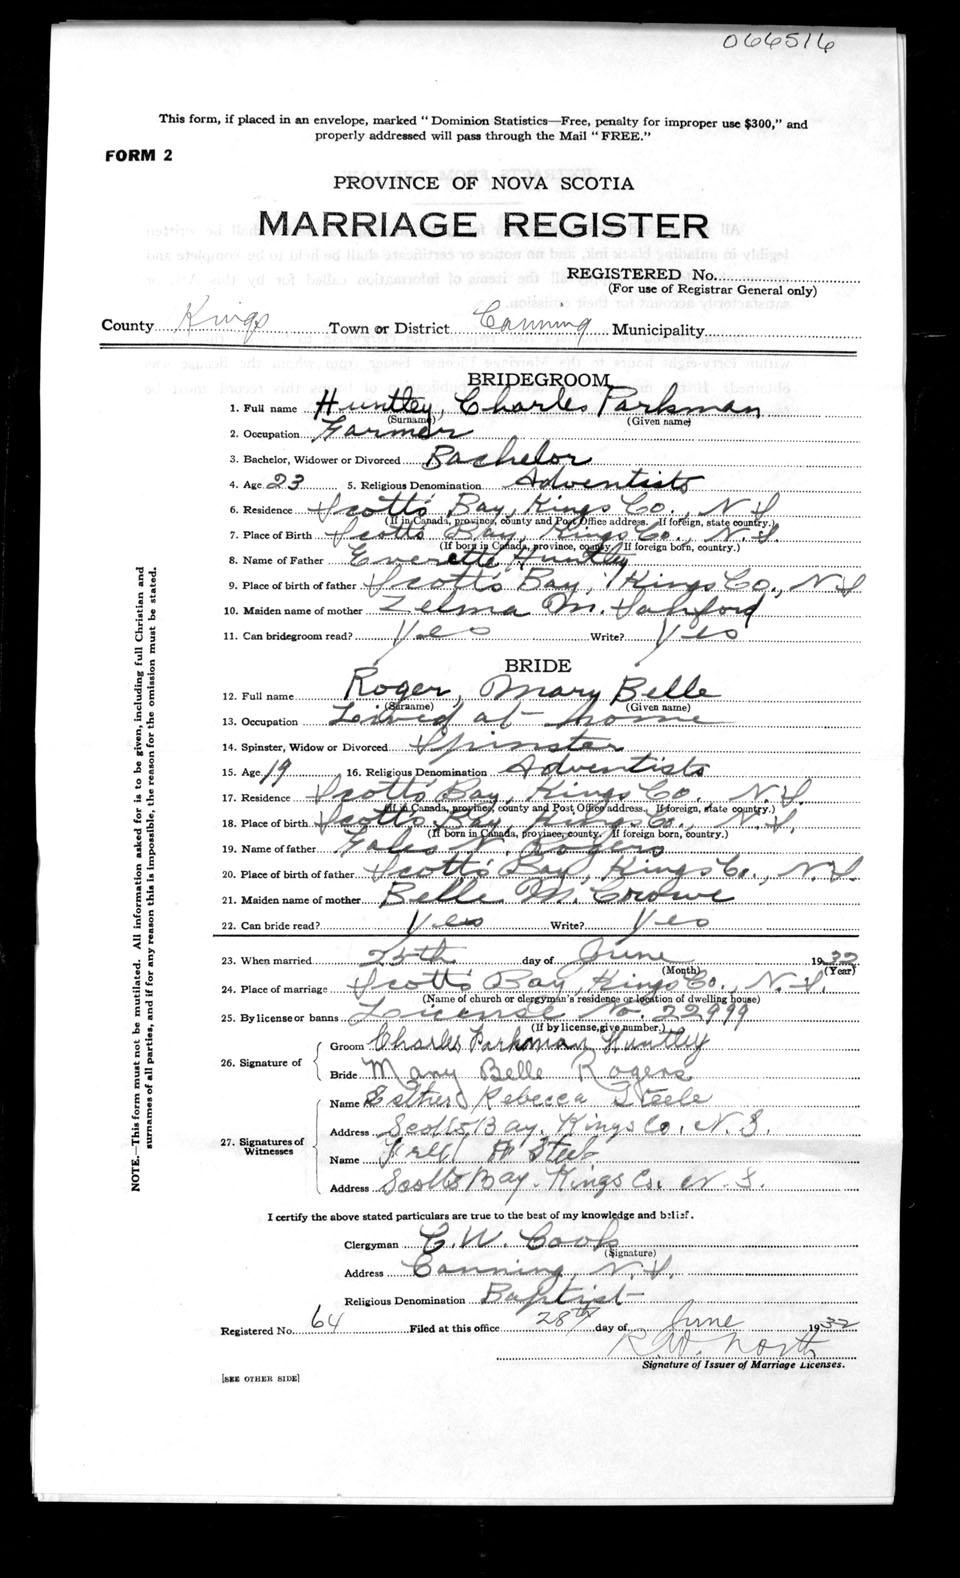 066516
This form, if placed in an envelope, marked "Dominion Statistics—Free, penalty for improper use $300," and
properly addressed will pass through the Mail "FREE."
FORM 2
PROVINCE OF NOVA SCOTIA
MARRIAGE REGISTER
REGISTERED No.
(For use of Registrar General only)
County Kings Town or District Canning Municipality
BRIDEGROOM
1. Full name Huntley, Charles Parkman
(Surname) (Given name)
2. Occupation Farmer
3. Bachelor, Widower or Divorced Bachelor
4. Age 23 5. Religious Denomination Adventists
6. Residence Scott's Bay, Kings Co., N.S
(If in Canada, province, county and Post Office address. If foreign, state country.)
7. Place of Birth Scott's Bay, Kings Co., N.S.
(If born in Canada, province, county. If foreign born, country.)
8. Name of Father Everette Huntley
9. Place of birth of father Scott's Bay, Kings Co., N.S
10. Maiden name of mother Zelma M. Sanford
11. Can bridegroom read? Yes Write? Yes
BRIDE
12. Full name Roger, Mary Belle
(Surname) (Given name)
13. Occupation Lived at home
14. Spinster, Widow or Divorced Spinster
15. Age 19 16. Religious Denomination Adventists
17. Residence Scott's Bay, Kings Co., N.S.
(If in Canada, province, county and Post Office address. If foreign, state country.)
18. Place of birth Scott's Bay, Kings Co., N.S.
(If born in Canada, province, county. If foreign born, country.)
19. Name of father N. Rogers
20. Place of birth of father Scott's Bay, Kings Co., N.S.
21. Maiden name of mother Belle M. Crowe
22. Can bride read? Yes Write? Yes
23. When married 25th day of June 1932
(Month) (Year)
24. Place of marriage Scott's Bay, Kings Co., N.S.
(Name of church or clergyman's residence or location of dwelling house)
25. By license or banns License No. 22999
(If by license, give number.)
26. Signature of
Groom Charles Parkman Huntley
Bride Mary Belle Rogers
27. Signatures of Witnesses
Name Esther Rebecca Steele
Address Scotts Bay. Kings Co. N.S.
Name Steele
Address Scotts Bay. Kings Co. N.S.
I certify the above stated particulars are true to the best of my knowledge and belief.
Clergyman C. W. Cook
(Signature)
Address Canning, N.S.
Religious Denomination Baptist
Registered No. 64 Filed at this office 28th day of June 1932
R.W. North
Signature of Issuer of Marriage Licenses.
[SEE OTHER SIDE]
NOTE.—This form must not be mutilated. All information asked for is to be given, including full Christian and
surnames of all parties, and if for any reason this is impossible, the reason for the omission must be stated.